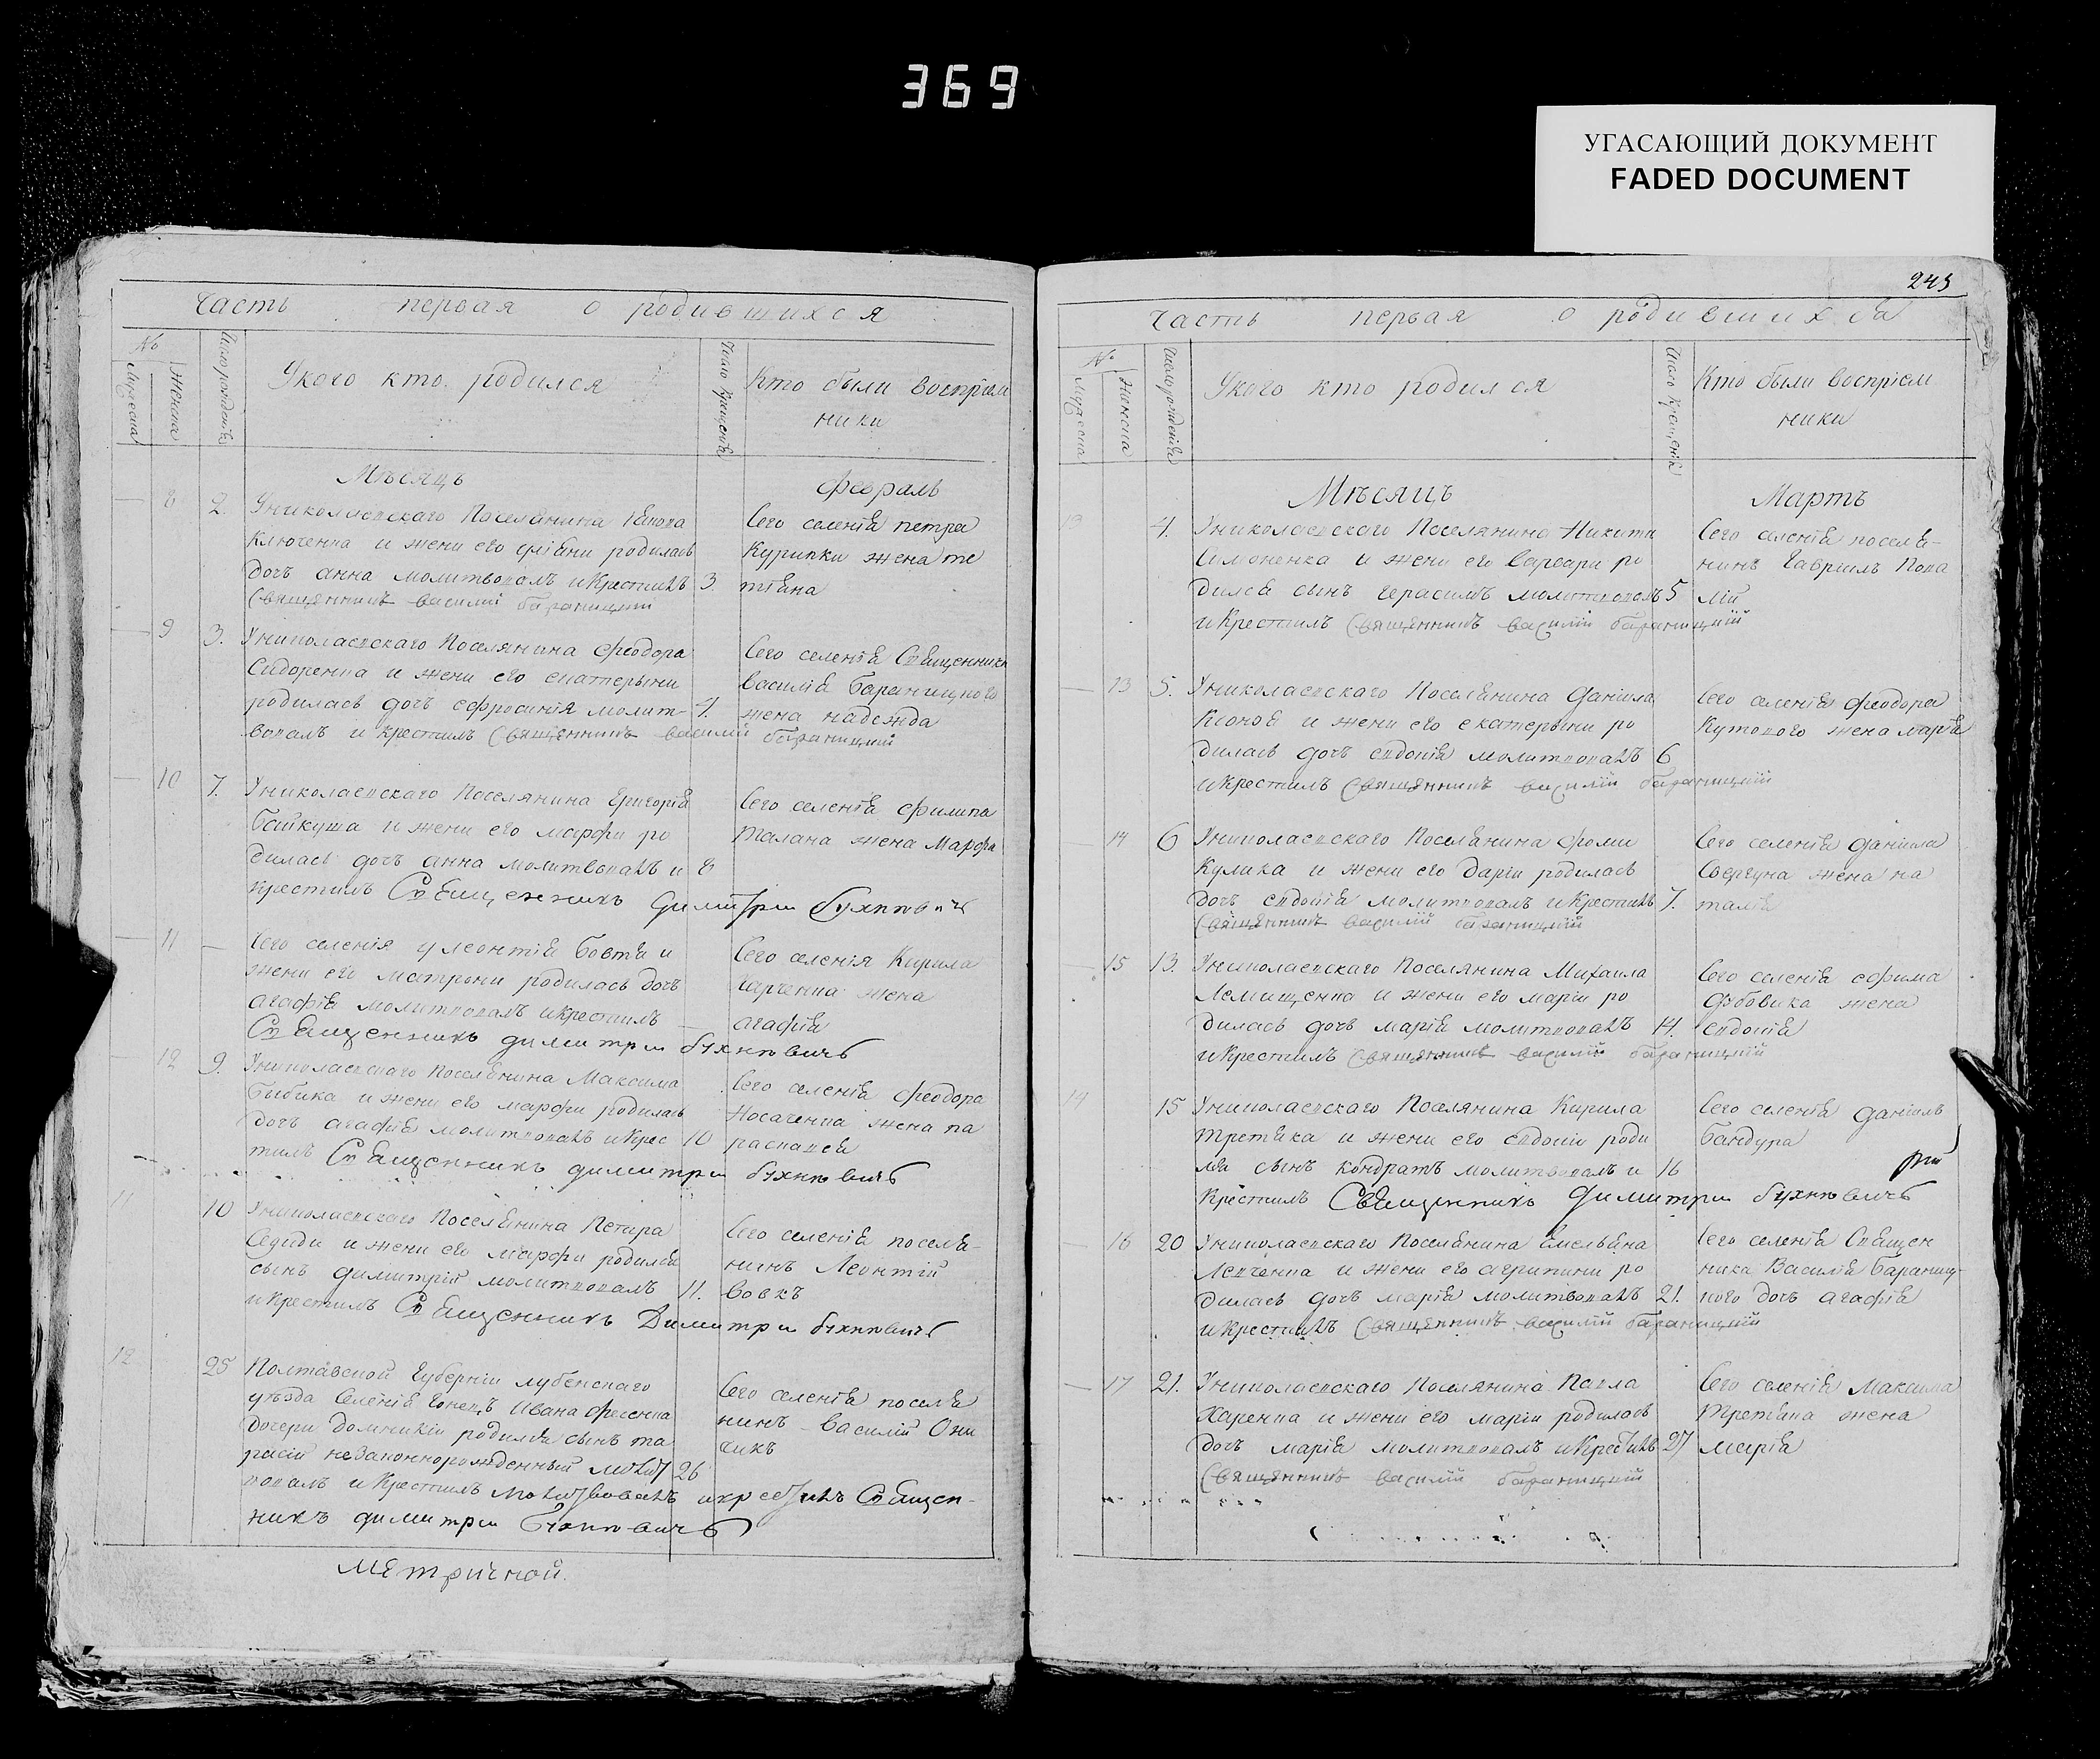 369
УГАСАЮЩИЙ ДОКУМЕНТ
FADED DOCUMENT
Часть первая о родившихся
№
Мужеска
Женска
Число рожденія
Укого кто родился
Число крещенія
Кто были воспріем
ники
Мѣсяцъ Февраль
8 2. Униколаевскаго Поселянина
Ключенка и жени его родилась
дочъ анна молитвовалъ икрестилъ 3
Священникъ василій бараницкій
Сего селенія петра
Курипки жена те
тіяна
9 3. Униколаевскаго Поселянина Феодора
Сидоренка и жени его екатерыни
родилась дочъ ефросинія молит- 4.
вовалъ и крестилъ Священникъ василій бараницкій
Сего селенія Священника
василія бараницкого
жена надежда
10 7. Униколаевскаго Поселянина Григорія
Байкуша и жени его марфи ро
дилась дочъ анна молитвовалъ и 8
крестилъ Священникъ Димитри бухновичъ
Сего селенія филипа
талана жена Марфа
11 — Сего селенія у леонтія Бовта и
жени его матрони родилась дочъ
агафія молитвовалъ икрестилъ —
Священникъ димитри бухновичъ
Сего селенія Кирила
Харченка жена
агафія
12 9. Униколаевскаго поселянина Максима
Бибика и жени его марфи родилась
дочъ агафія молитвовалъ икрес 10
тилъ Священникъ димитри бухновичъ
Сего селенія феодора
Носаченка жена па
раскавея
11 10 Униколаевскаго Поселянина Петра
Седиди и жени его марфи родился
сынъ димитрій молитвовалъ 11.
икрестилъ Священникъ Димитри бухновичъ
Сего селенія поселя-
нинъ Леонтій
вовкъ
12 25 Полтавской Губерніи лубенскаго
уѣзда Селенія Ивана Фесенка
дочери домникіи родился сынъ та
расій незаконнорожденный молит 26
вовалъ икрестилъ молитвовалъ икрестилъ Священ-
никъ димитри бухновичъ
Сего селенія поселя
нинъ василій Они
сикъ
Метричной.
243
Часть первая о родившихся
№
Мужеска
Женска
Число рожденія
Укого кто родился
Число крещенія
Кто были воспріем
ники
Мѣсяцъ Мартъ
13 4. Униколаевского Поселянина Никити
Симоненка и жени его варвари ро
дился сынъ герасимъ молитвовалъ 5
икрестилъ Священникъ василій бараницкій
Сего селенія поселя-
нинъ Гавріилъ Кова
лій
13 5. Униколаевскаго Поселянина Даніила
Конов и жени его екатерыни ро
дилась дочъ евдокія молитвовалъ 6
икрестилъ Священникъ василій бараницкій
Сего селенія феодора
Кутового жена марія
14 6 Униколаевскаго Поселянина Фоми
Кулика и жени его Даріи родилась
дочъ евдокія молитвовалъ икрестилъ 7.
Священникъ василій бараницкій
Сего селенія даніила
Свергуна жена на
талія
15 13. Униколаевскаго Поселянина Михаила
Лемищенка и жени его маріи ро
дилась дочъ марія молитвовалъ 14.
икрестилъ Священникъ василій бараницкій
Сего селенія ефима
дубовика жена
евдокія
14 15 Униколаевскаго Поселянина Кирила
третяка и жени его евдокіи роди
лся сынъ кондратъ молитвовалъ и 16
крестилъ Священникъ Димитри бухновичъ
Сего селенія даніилъ
бандура
16 20 Униколаевскаго Поселянина Емельяна
Левченка и жени его агрипини ро
дилась дочъ марія молитвовалъ 21.
икрестилъ Священникъ василій бараницкій
Сего селенія Священ
ника Василія бараниц-
кого дочъ агафія
17 21. Униколаевскаго Поселянина Павла
Харенка и жени его маріи родилась
дочъ марія молитвовалъ икрестилъ 27
Священникъ василій бараницкій
Сего селенія Максима
третяка жена
марія